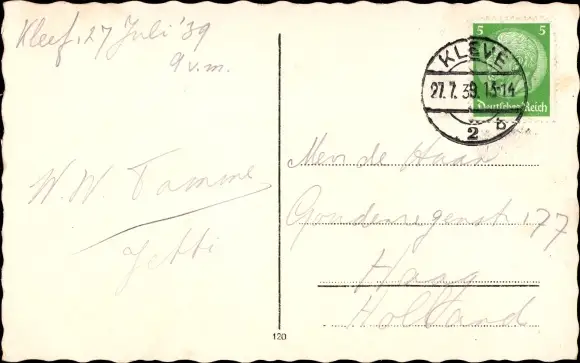 Kleef, 27 Juli '39
9 v.m.
W. W. Tamme
Jetti
5 5
KLEVE
27.7.39.13-14
2 b
Deutsches Reich
Mevr de Haan
Goudenregenstr 177
Haag
Holland
120